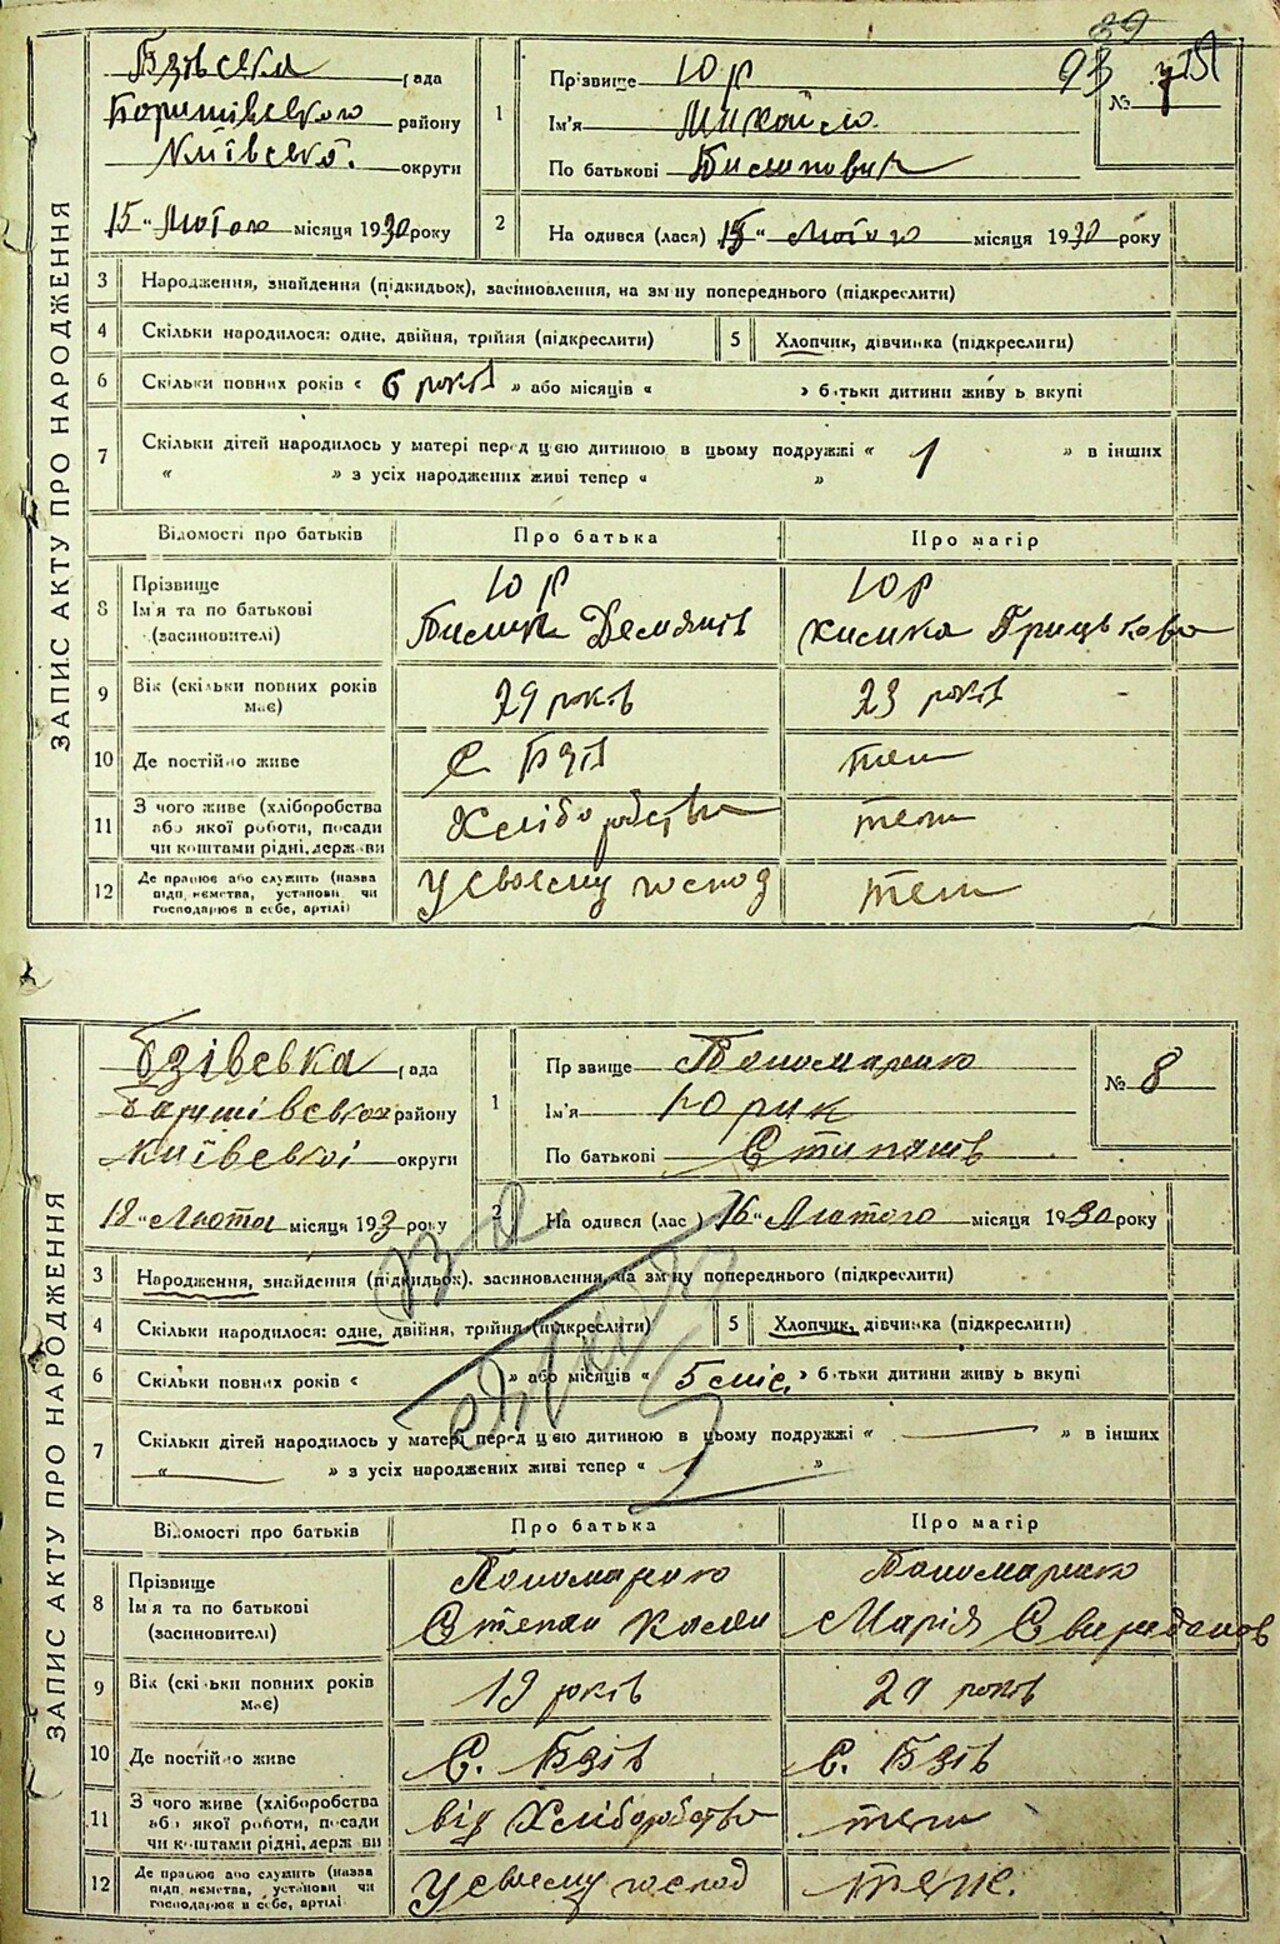 39
93
ЗАПИС АКТУ ПРО НАРОДЖЕННЯ
Бзівська рада
Баришівського району
Київської округи
15 „ Лютого місяця 1930 року
1 Прізвище Юр
Ім'я Михайло
По батькові
№ 7
2 На одився (лася) 15 „ Лютого місяця 1930 року
3 Народження, знайдення (підкидьок), засиновлення, на зміну попереднього (підкреслити)
4 Скільки народилося: одне, двійня, трійня (підкреслити)
5 Хлопчик, дівчинка (підкреслити)
6 Скільки повних років « 6 років » або місяців « » батьки дитини живуть вкупі
7 Скільки дітей народилось у матері перед цією дитиною в цьому подружжі « 1 » в інших
« » з усіх народжених живі тепер « »
Відомості про батьків Про батька Про матір
8 Прізвище
Ім'я та по батькові
(засиновителі)
Юр
Демянів
Юр
Грицькова
9 Вік (скільки повних років має)
29 років
23 років
10 Де постійно живе
С Бзів
теж
11 З чого живе (хліборобства
або якої роботи, посади
чи коштами рідні, держави
Хліборобства
теж
12 Де працює або служить (назва
підприємства, установи чи
господарює в себе, артілі)
У своєму господ
теж
ЗАПИС АКТУ ПРО НАРОДЖЕННЯ
Бзівська рада
Баришівської району
Київської округи
18 „ Лютого місяця 193 року
1 Прізвище Пономаренко
Ім'я Юрик
По батькові Стипанів
№ 8
2 На одився (лас ) 16 „ Лютого місяця 1930 року
3 Народження, знайдення (підкидьок), засиновлення, на зміну попереднього (підкреслити)
4 Скільки народилося: одне, двійня, трійня (підкреслити)
5 Хлопчик, дівчинка (підкреслити)
6 Скільки повних років « » або місяців « 5 міс. » батьки дитини живуть вкупі
7 Скільки дітей народилось у матері перед цією дитиною в цьому подружжі « — » в інших
« — » з усіх народжених живі тепер « 1 »
Відомості про батьків Про батька Про матір
8 Прізвище
Ім'я та по батькові
(засиновителі)
Пономаренко
Степан
Пономаренко
Марія Свиридонов
9 Вік (скільки повних років має)
19 років
років
10 Де постійно живе
С. Бзів
С. Бзів
11 З чого живе (хліборобства
або якої роботи, посади
чи коштами рідні, держави
від Хліборобства
теж
12 Де працює або служить (назва
підприємства, установи чи
господарює в себе, артілі
У своєму господ
теж.